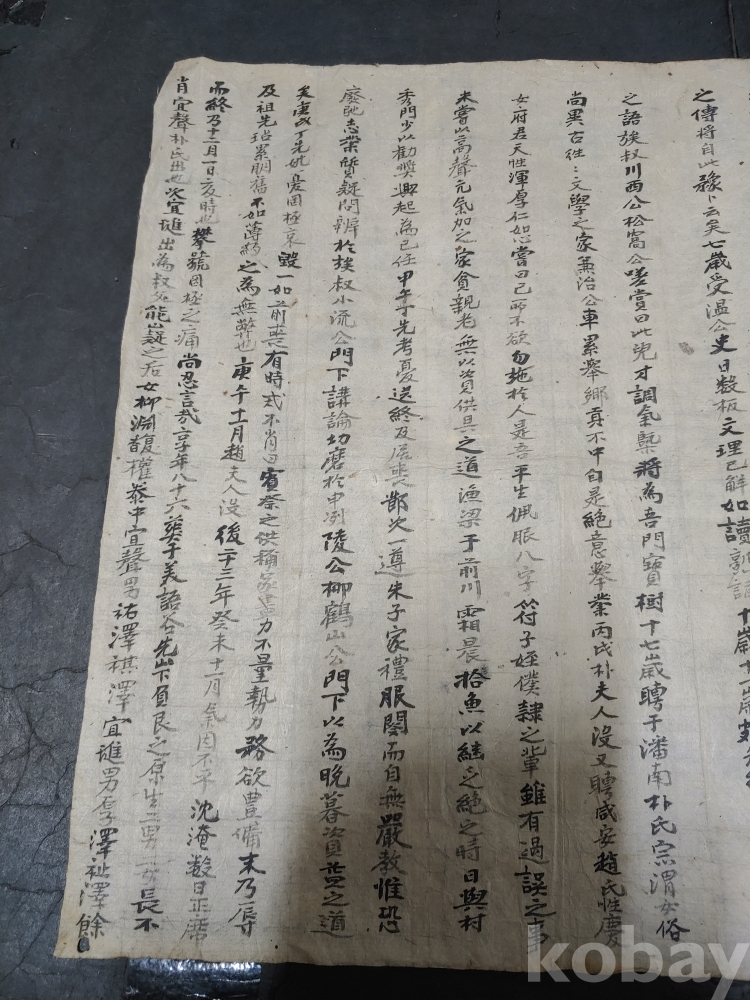 十歲十一歲
之傳將自此豫卜云矣七歲受溫公史日數板文理已解如讀
之語族叔川西公松窩公嗟賞曰此兒才調氣槩將為吾門寶樹十七歲聘于潘南朴氏宗渭女俗
尚異古徃〻文學之家兼治公車累擧鄕貢不中自是絕意擧業丙戌朴夫人沒又聘咸安趙氏性慶
女府君天性渾厚仁恕嘗曰己所不欲勿施於人是吾平生佩服八字符子姪僕隷之輩雖有過誤之事
未嘗以高聲元氣加之家貧親老無以資供具之道漁梁于前川霜晨拾魚以繼乏絕之時日與村
秀門少以勸奬興起為己任甲午丁先考憂送終及居喪鄙次一遵朱子家禮服闋而自無嚴敎惟恐
廢弛志業質疑問辨於族叔小流公門下講論切磨於申冽陵公柳鶴山公門下以為晩暮資益之道
矣庚戌丁先妣憂罔極哀毀一如前喪有時戒不肖曰賓祭之供稱家力不量勢力務欲豊備末乃辱
及祖先玷累朋舊不如薄略之為無弊也庚午十一月趙夫人沒後十三年癸未十一月氣因不平沈淹數日正席
而終乃十二月一日亥時也攀號罔極之痛尚忍言哉享年八十六葬于美語谷先山下負艮之原生二男二女長不
肖宜聲朴氏出也次宜進出為叔父能嶷之后女柳淵馥權泰中宜聲男祐澤祺澤宜進男厚澤祉澤餘
kobay